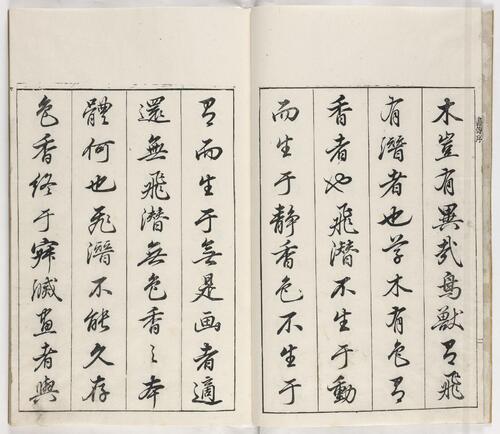 木豈有異哉鳥獸有飛
有潛者也草木有色有
香者也飛潛不生于動
而生于静香色不生于
有而生于無是画者適
還無飛潛無色香之本
體何也飛潛不能久存
色香終于寂滅畫者與
畫傳序